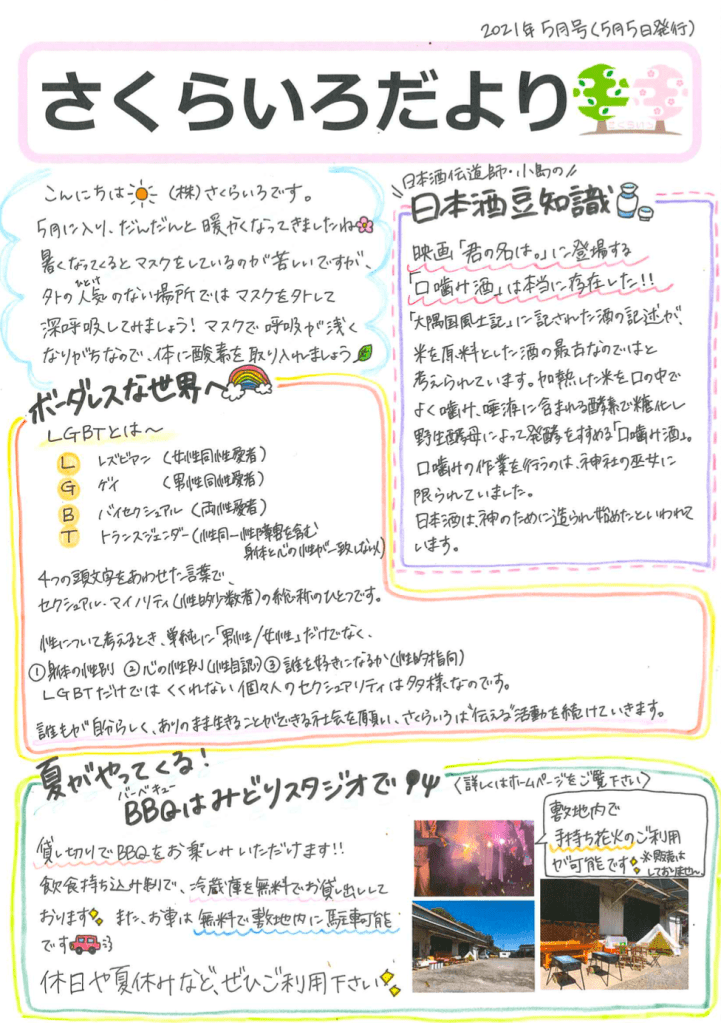 2021年5月号(5月5日発行)
さくらいろだより
さくらいろ
こんにちは (株)さくらいろです。
5月に入り、だんだんと暖かくなってきましたね
暑くなってくるとマスクをしているのが苦しいですが、
外の人気のない場所ではマスクを外して
ひとけ
深呼吸してみましょう!マスクで呼吸が浅く
なりがちなので、体に酸素を取り入れましょう
\\日本酒伝道師・小島の//
日本酒豆知識
映画「君の名は。」に登場する
「口噛み酒」は本当に存在した!!
「大隅国風土記」に記された酒の記述が、
米を原料とした酒の最古なのではと
考えられています。加熱した米を口の中で
よく噛み、唾液に含まれる酵素で糖化し
野生酵母によって発酵をすすめる「口噛み酒」。
口噛みの作業を行うのは、神社の巫女に
限られていました。
日本酒は、神のために造られ始めたといわれて
います。
ボーダレスな世界へ
LGBTとは〜
L レズビアン (女性同性愛者)
G ゲイ (男性同性愛者)
B バイセクシュアル (両性愛者)
T トランスジェンダー (性同一性障害を含む
身体と心の性が一致しない人)
4つの頭文字をあわせた言葉で、
セクシュアル・マイノリティ(性的少数者)の総称のひとつです。
性について考えるとき、単純に「男性/女性」だけでなく、
①身体の性別 ②心の性別(性自認) ③誰を好きになるか(性的指向)
LGBTだけではくくれない個々人のセクシュアリティは多様なのです。
誰もが自分らしく、ありのまま生きることができる社会を願い、さくらいろは"伝える"活動を続けていきます。
夏がやってくる!
バーベキュー
BBQはみどりスタジオで
〈詳しくはホームページをご覧下さい〉
貸し切りでBBQをお楽しみいただけます!!
飲食持ち込み制で、冷蔵庫を無料でお貸し出しして
おります また、お車は無料で敷地内に駐車可能
です
休日や夏休みなど、ぜひご利用下さい
敷地内で
手持ち花火のご利用
が可能です ※販売は
しておりません。